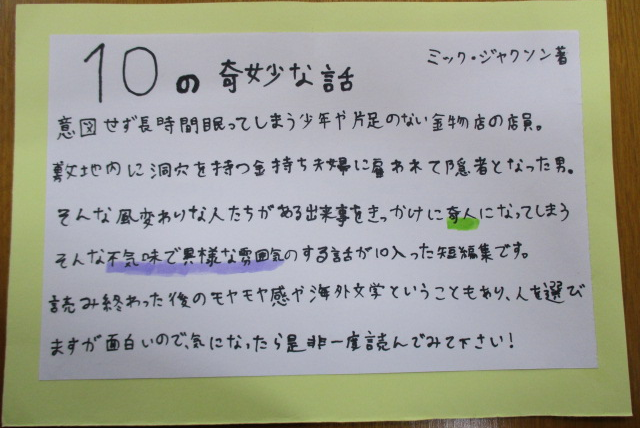 10の奇妙な話
ミック・ジャクソン著
意図せず長時間眠ってしまう少年や片足のない金物店の店員。
敷地内に洞穴を持つ金持ち夫婦に雇われて隠者となった男。
そんな風変わりな人たちがある出来事をきっかけに奇人になってしまう
そんな不気味で異様な雰囲気のする話が10入った短編集です。
読み終わった後のモヤモヤ感や海外文学ということもあり、人を選び
ますが面白いので、気になったら是非一度読んでみて下さい!